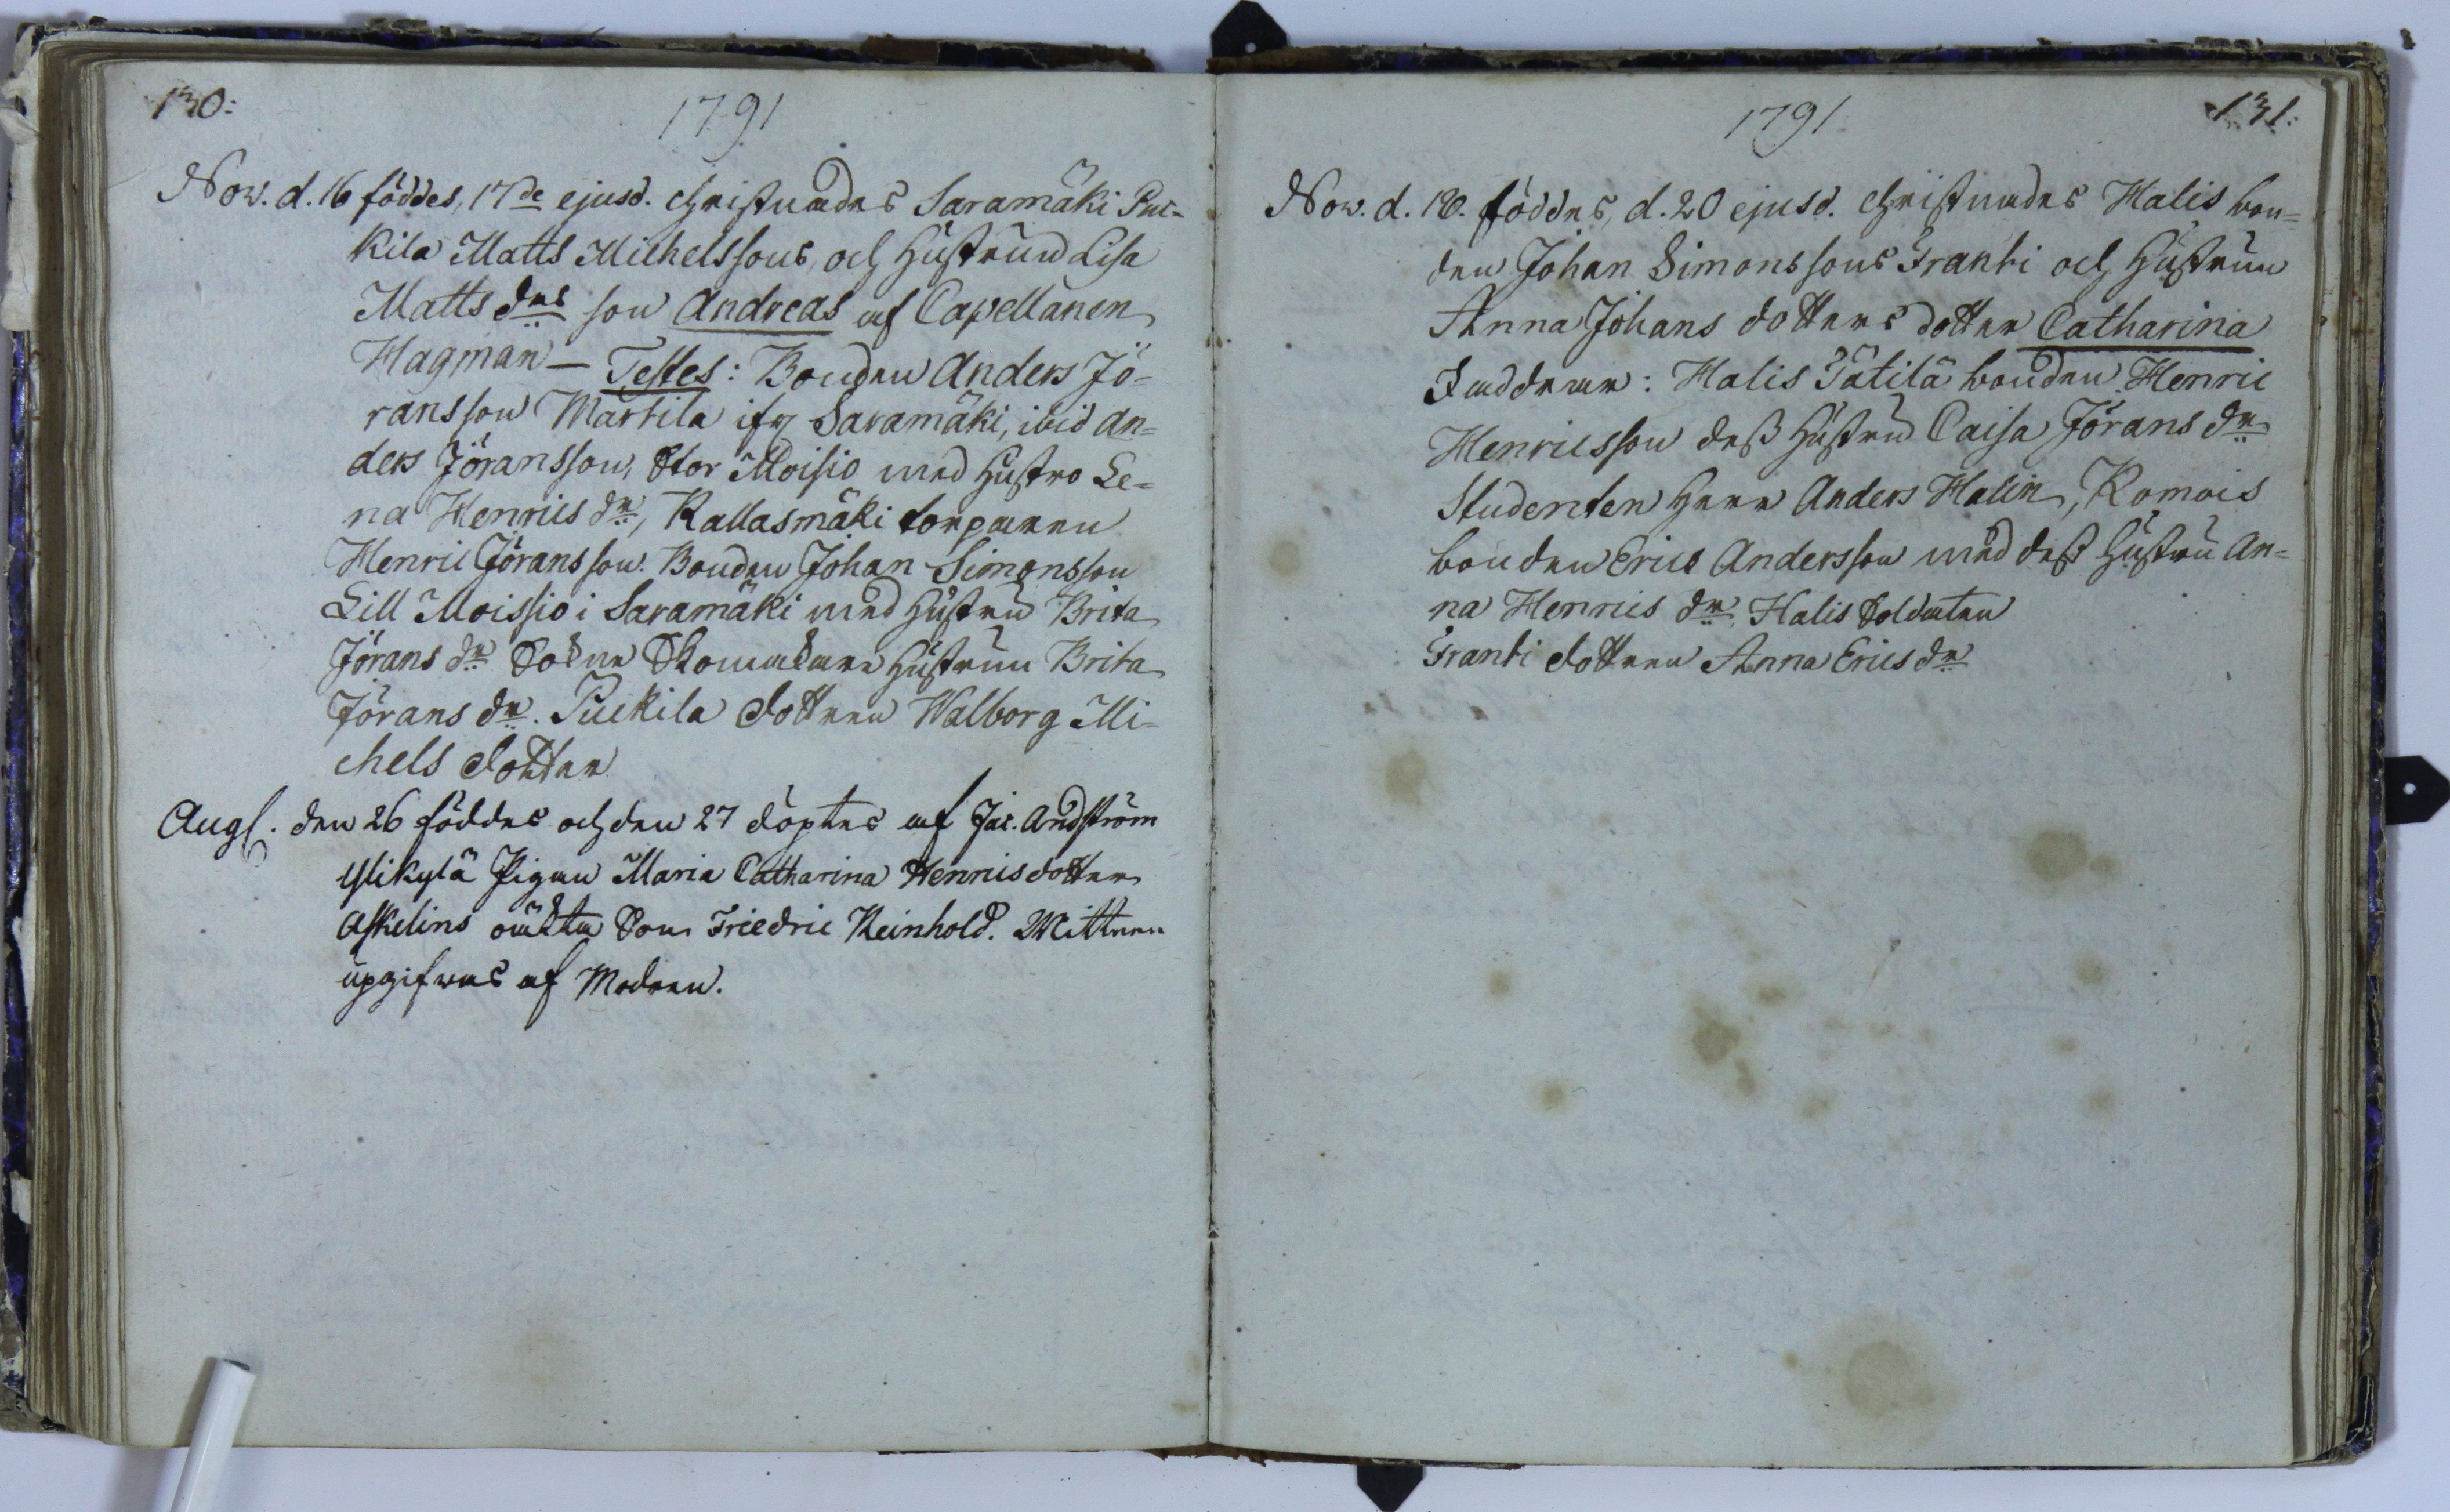 130:
1791
Nov. d. 16 föddes, 17de ejusd. christnades Saramäki Puc-
kila Matts Michelssons, och hustrun Lisa
Matts drs son Andreas af Capellanen
Hagman — Testes: Bonden Anders Jö-
ransson Martila ifr Saramäki, ibid An-
ders Jöransson, Stor Moisio med hustro Le-
na Henrics dr, Kallasmäki torparen
Henric Jöransson. Bonden Johan Simonsson
Lill Moissio i Saramäki med hustru Brita
Jörans dr Sokne Skomakare hustrun Brita
Jörans dr. Puckila dottren Walborg Mi-
chels dotter
Aug. den 26 föddes och den 27 döptes af Jac. Andström
Ylikylä Pigan Maria Catharina Henricsdotter
Askelins oäckta Son Friedric Reinhold. Wittnen
upgifwas af Modren.
1791
131:
Nov. d. 18. föddes, d. 20 ejusd. christnades Halis bon-
den Johan Simonssons Franti och hustrun
Anna Johans dotters dotter Catharina
Faddrar: Halis Tätilä bonden Henric
Henricsson dess hustru Caisa Jörans dr
Studenten Herr Anders Halin, Komois
bonden Eric Andersson med dess hustru An-
na Henrics dr, Halis Soldaten
Franti dottren Anna Erics dr